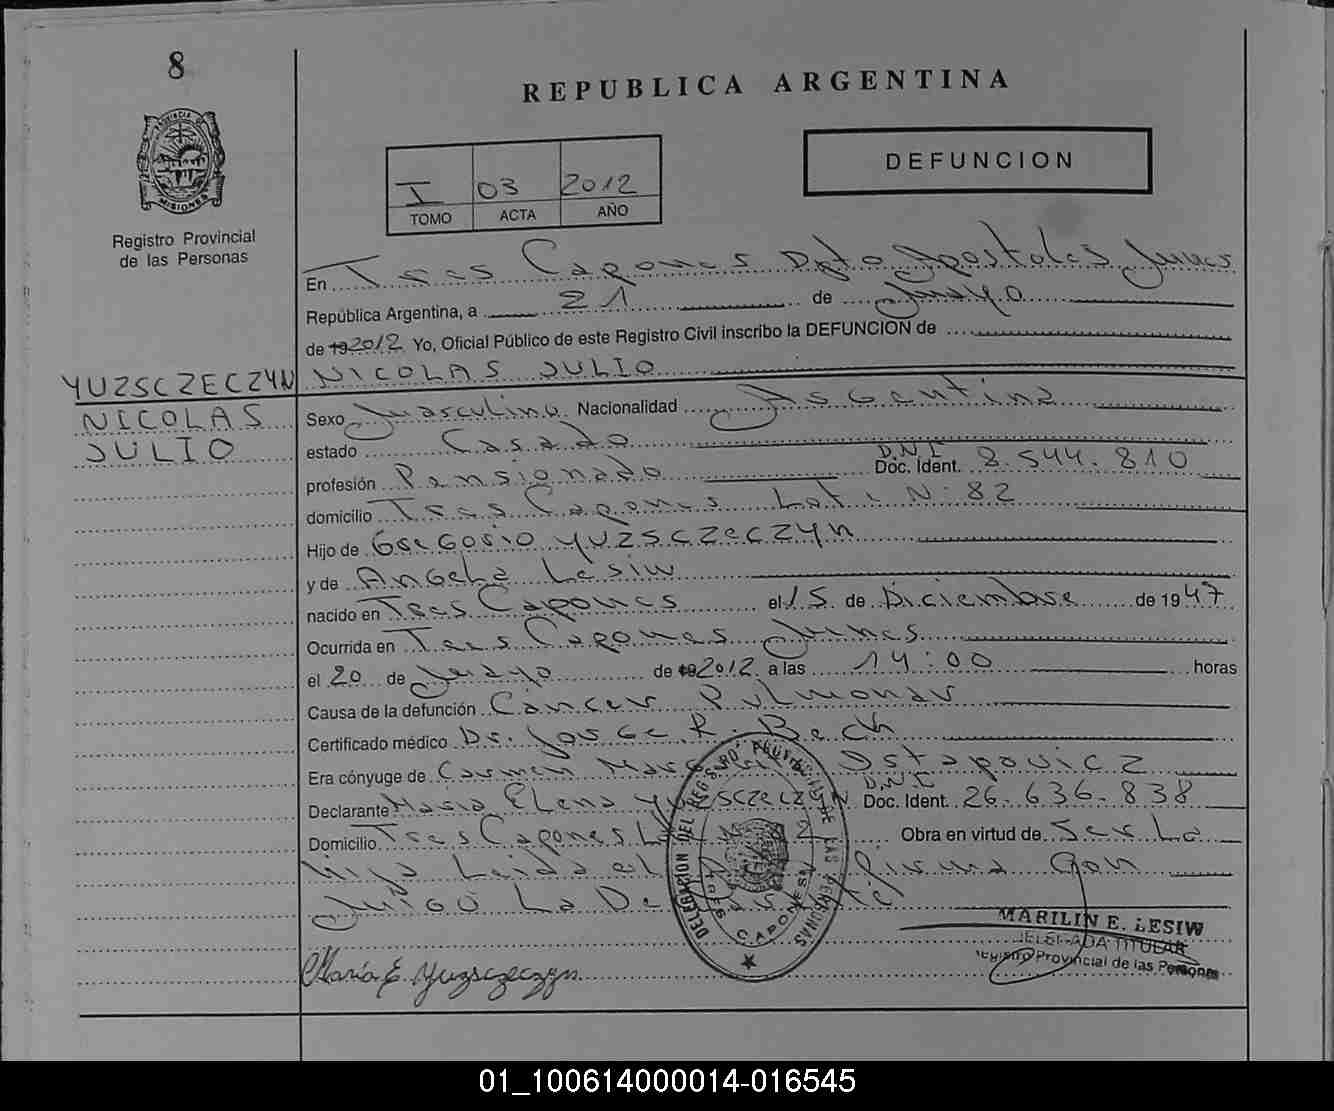 8
PROVINCIA DE MISIONES
Registro Provincial
de las Personas
REPUBLICA ARGENTINA
I 03 2012
TOMO ACTA AÑO
DEFUNCION
En Tres Capones Dpto Apostoles Mnes
República Argentina, a 21 de Mayo
de 19 2012 Yo, Oficial Público de este Registro Civil inscribo la DEFUNCION de
YUZSCZECZYN NICOLAS JULIO
NICOLAS
JULIO
Sexo Masculino Nacionalidad Argentina
estado Casado
profesión Pensionado D.N.I Doc. Ident. 8.544.810
domicilio Tres Capones Lote N: 82
Hijo de Gregorio YUZSCZeCZYN
y de Angela Lesiw
nacido en Tres Capones el 15 de Diciembre de 1947
Ocurrida en Tres Capones Mnes
el 20 de Mayo de 19 2012 a las 14:00 horas
Causa de la defunción Cáncer Pulmonar
Certificado médico Dr. Jorge R. Bech
Era cónyuge de Carmen Ostapovicz
Declarante Maria Elena Yuzsczeczyn D.N.I Doc. Ident. 26.636.838
Domicilio Tres Capones Obra en virtud de Ser La
hija Leida el firma Con
Migo La De
DELEGACION DEL REGISTRO PROVINCIAL DE LAS PERSONAS
TRES CAPONES
MARILIN E. LESIW
DELEGADA TITULAR
Registro Provincial de las Personas
María E. Yuzsczeczyn
01_100614000014-016545